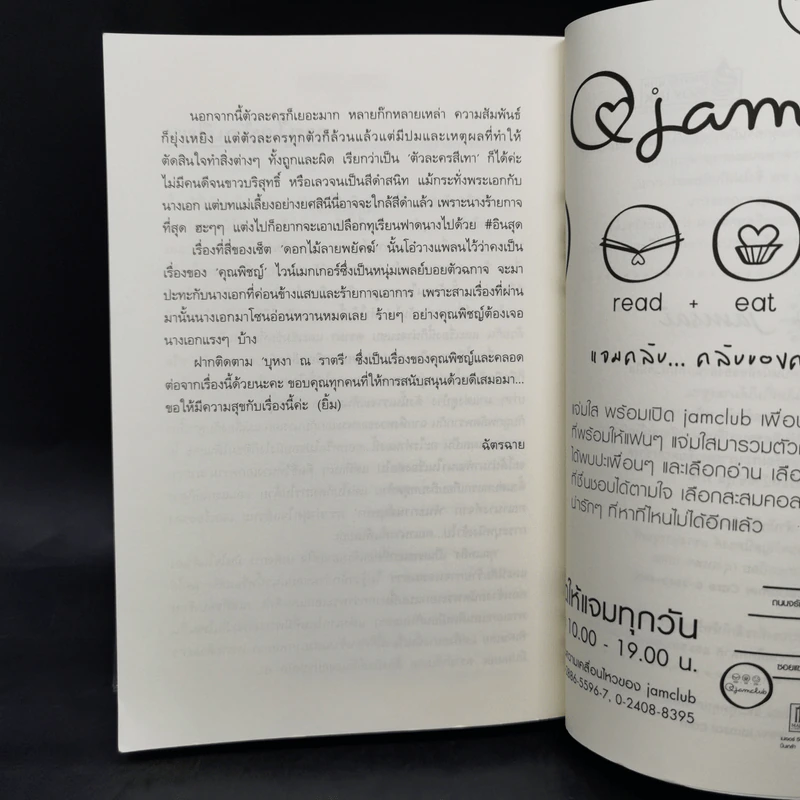 นอกจากนี้ตัวละครก็เยอะมาก หลายก๊กหลายเหล่า ความสัมพันธ์
ก็ยุ่งเหยิง แต่ตัวละครทุกตัวก็ล้วนแล้วแต่มีปมและเหตุผลที่ทำให้
ตัดสินใจทำสิ่งต่างๆ ทั้งถูกและผิด เรียกว่าเป็น 'ตัวละครสีเทา' ก็ได้ค่ะ
ไม่มีคนดีจนขาวบริสุทธิ์ หรือเลวจนเป็นสีดำสนิท แม้กระทั่งพระเอกกับ
นางเอก แต่บทแม่เลี้ยงอย่างยศสินีนี่อาจจะใกล้สีดำแล้ว เพราะนางร้ายกาจ
ที่สุด ฮะๆๆ แต่งไปก็อยากจะเอาเปลือกทุเรียนฟาดนางไปด้วย #อินสุด
เรื่องที่สี่ของเซ็ต 'ดอกไม้ลายพยัคฆ์' นั้นโอ๋วางแพลนไว้ว่าคงเป็น
เรื่องของ 'คุณพิชญ์' ไวน์เมกเกอร์ซึ่งเป็นหนุ่มเพลย์บอยตัวฉกาจ จะมา
ปะทะกับนางเอกที่ค่อนข้างแสบและร้ายกาจเอาการ เพราะสามเรื่องที่ผ่าน
มานั้นนางเอกมาโซนอ่อนหวานหมดเลย ร้ายๆ อย่างคุณพิชญ์ต้องเจอ
นางเอกแรงๆ บ้าง
ฝากติดตาม 'บุหงา ณ ราตรี' ซึ่งเป็นเรื่องของคุณพิชญ์และคลอด
ต่อจากเรื่องนี้ด้วยนะคะ ขอบคุณทุกคนที่ให้การสนับสนุนด้วยดีเสมอมา...
ขอให้มีความสุขกับเรื่องนี้ค่ะ (ยิ้ม)
ฉัตรฉาย
jam
read + eat
แจมคลับ... คลับของค
แจ่มใส พร้อมเปิด jamclub เพื่อน
ที่พร้อมให้แฟนๆ แจ่มใสมารวมตัว
ได้พบปะเพื่อนๆ และเลือกอ่าน เลือ
ที่ชื่นชอบได้ตามใจ เลือกสะสมคอล
น่ารักๆ ที่หาที่ไหนไม่ได้อีกแล้ว
ให้แจมทุกวัน
10.00 - 19.00 น.
ความเคลื่อนไหวของ jamclub
886-5596-7, 0-2408-8395
jamclub